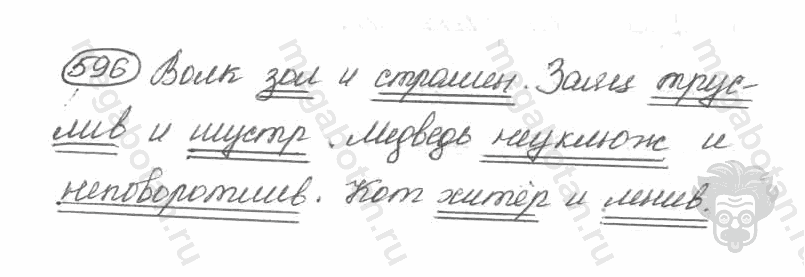 596 Волк зол и страшен. Заяц трус-
лив и шустр. Медведь неуклюж и
неповоротлив. Кот хитёр и ленив.
megabotan.ru